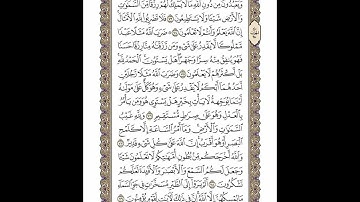 وَيَعْبُدُونَ مِن دُونِ ٱللَّهِ مَا لَا يَمْلِكُ لَهُمْ رِزْقًا مِّنَ ٱلسَّمَٰوَٰتِ
وَٱلْأَرْضِ شَيْـًٔا وَلَا يَسْتَطِيعُونَ ٧٣ فَلَا تَضْرِبُوا۟ لِلَّهِ ٱلْأَمْثَالَ
إِنَّ ٱللَّهَ يَعْلَمُ وَأَنتُمْ لَا تَعْلَمُونَ ٧٤ ضَرَبَ ٱللَّهُ مَثَلًا عَبْدًا
مَّمْلُوكًا لَّا يَقْدِرُ عَلَىٰ شَىْءٍ وَمَن رَّزَقْنَٰهُ مِنَّا رِزْقًا حَسَنًا
فَهُوَ يُنفِقُ مِنْهُ سِرًّا وَجَهْرًا هَلْ يَسْتَوُۥنَ ٱلْحَمْدُ لِلَّهِ
بَلْ أَكْثَرُهُمْ لَا يَعْلَمُونَ ٧٥ وَضَرَبَ ٱللَّهُ مَثَلًا رَّجُلَيْنِ
أَحَدُهُمَآ أَبْكَمُ لَا يَقْدِرُ عَلَىٰ شَىْءٍ وَهُوَ كَلٌّ عَلَىٰ مَوْلَىٰهُ
أَيْنَمَا يُوَجِّههُّ لَا يَأْتِ بِخَيْرٍ هَلْ يَسْتَوِى هُوَ وَمَن يَأْمُرُ
بِٱلْعَدْلِ وَهُوَ عَلَىٰ صِرَٰطٍ مُّسْتَقِيمٍ ٧٦ وَلِلَّهِ غَيْبُ
ٱلسَّمَٰوَٰتِ وَٱلْأَرْضِ وَمَآ أَمْرُ ٱلسَّاعَةِ إِلَّا كَلَمْحِ
ٱلْبَصَرِ أَوْ هُوَ أَقْرَبُ إِنَّ ٱللَّهَ عَلَىٰ كُلِّ شَىْءٍ قَدِيرٌ ٧٧
وَٱللَّهُ أَخْرَجَكُم مِّنۢ بُطُونِ أُمَّهَٰتِكُمْ لَا تَعْلَمُونَ شَيْـًٔا
وَجَعَلَ لَكُمُ ٱلسَّمْعَ وَٱلْأَبْصَٰرَ وَٱلْأَفْـِٔدَةَ لَعَلَّكُمْ
تَشْكُرُونَ ٧٨ أَلَمْ يَرَوْا۟ إِلَى ٱلطَّيْرِ مُسَخَّرَٰتٍ فِى جَوِّ ٱلسَّمَآءِ
مَا يُمْسِكُهُنَّ إِلَّا ٱللَّهُ إِنَّ فِى ذَٰلِكَ لَءَايَٰتٍ لِّقَوْمٍ يُؤْمِنُونَ ٧٩